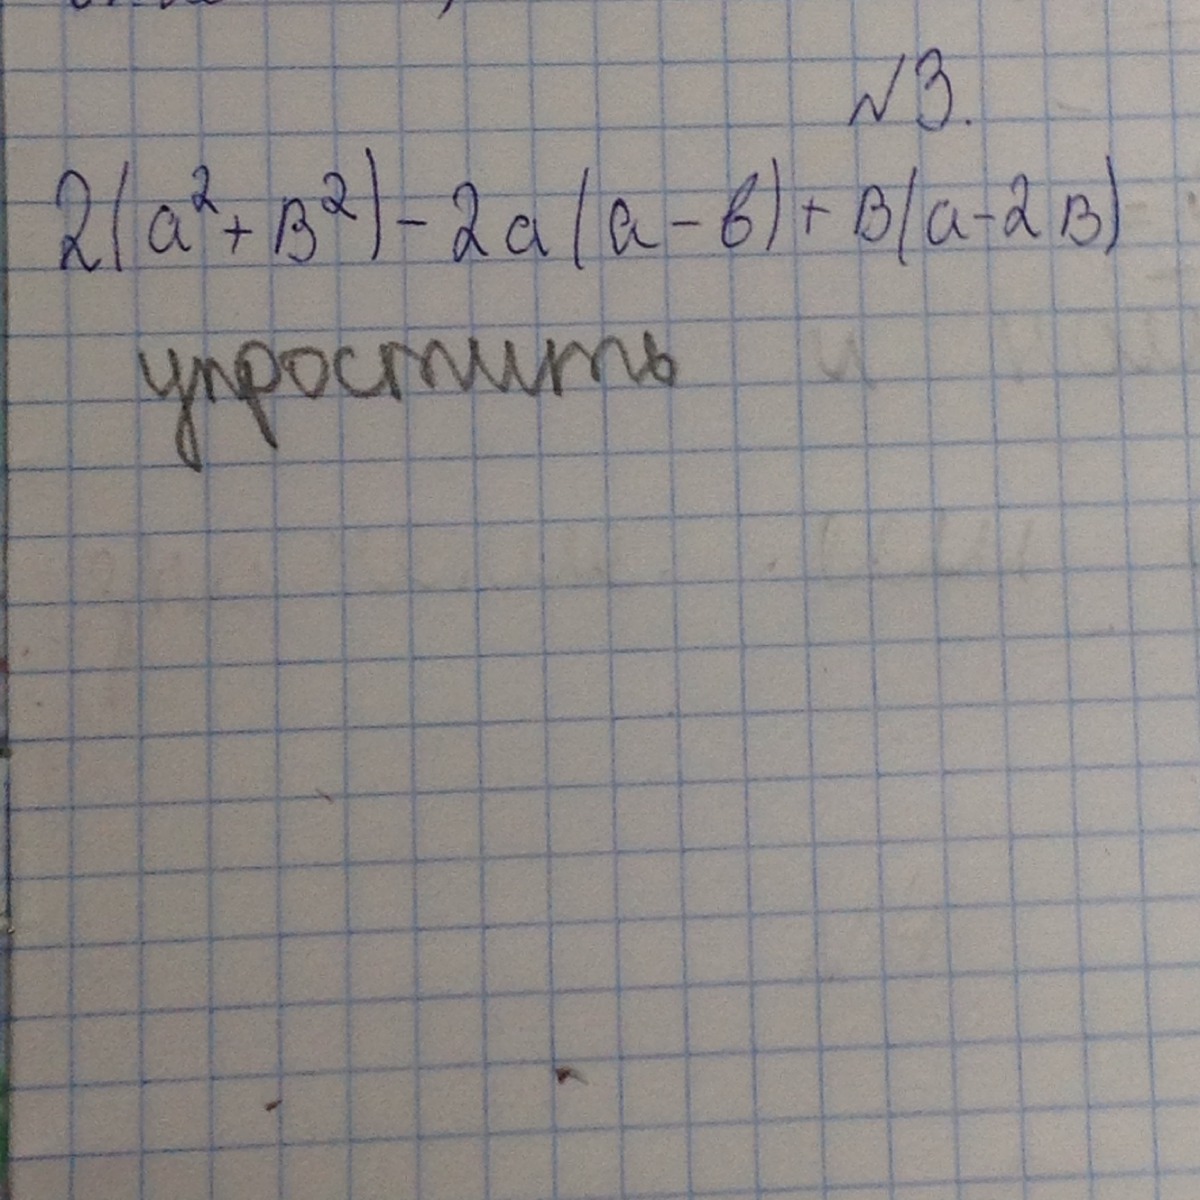 №3.
2(a²+в²)-2a(a-в)+в(a-2в)
упростить